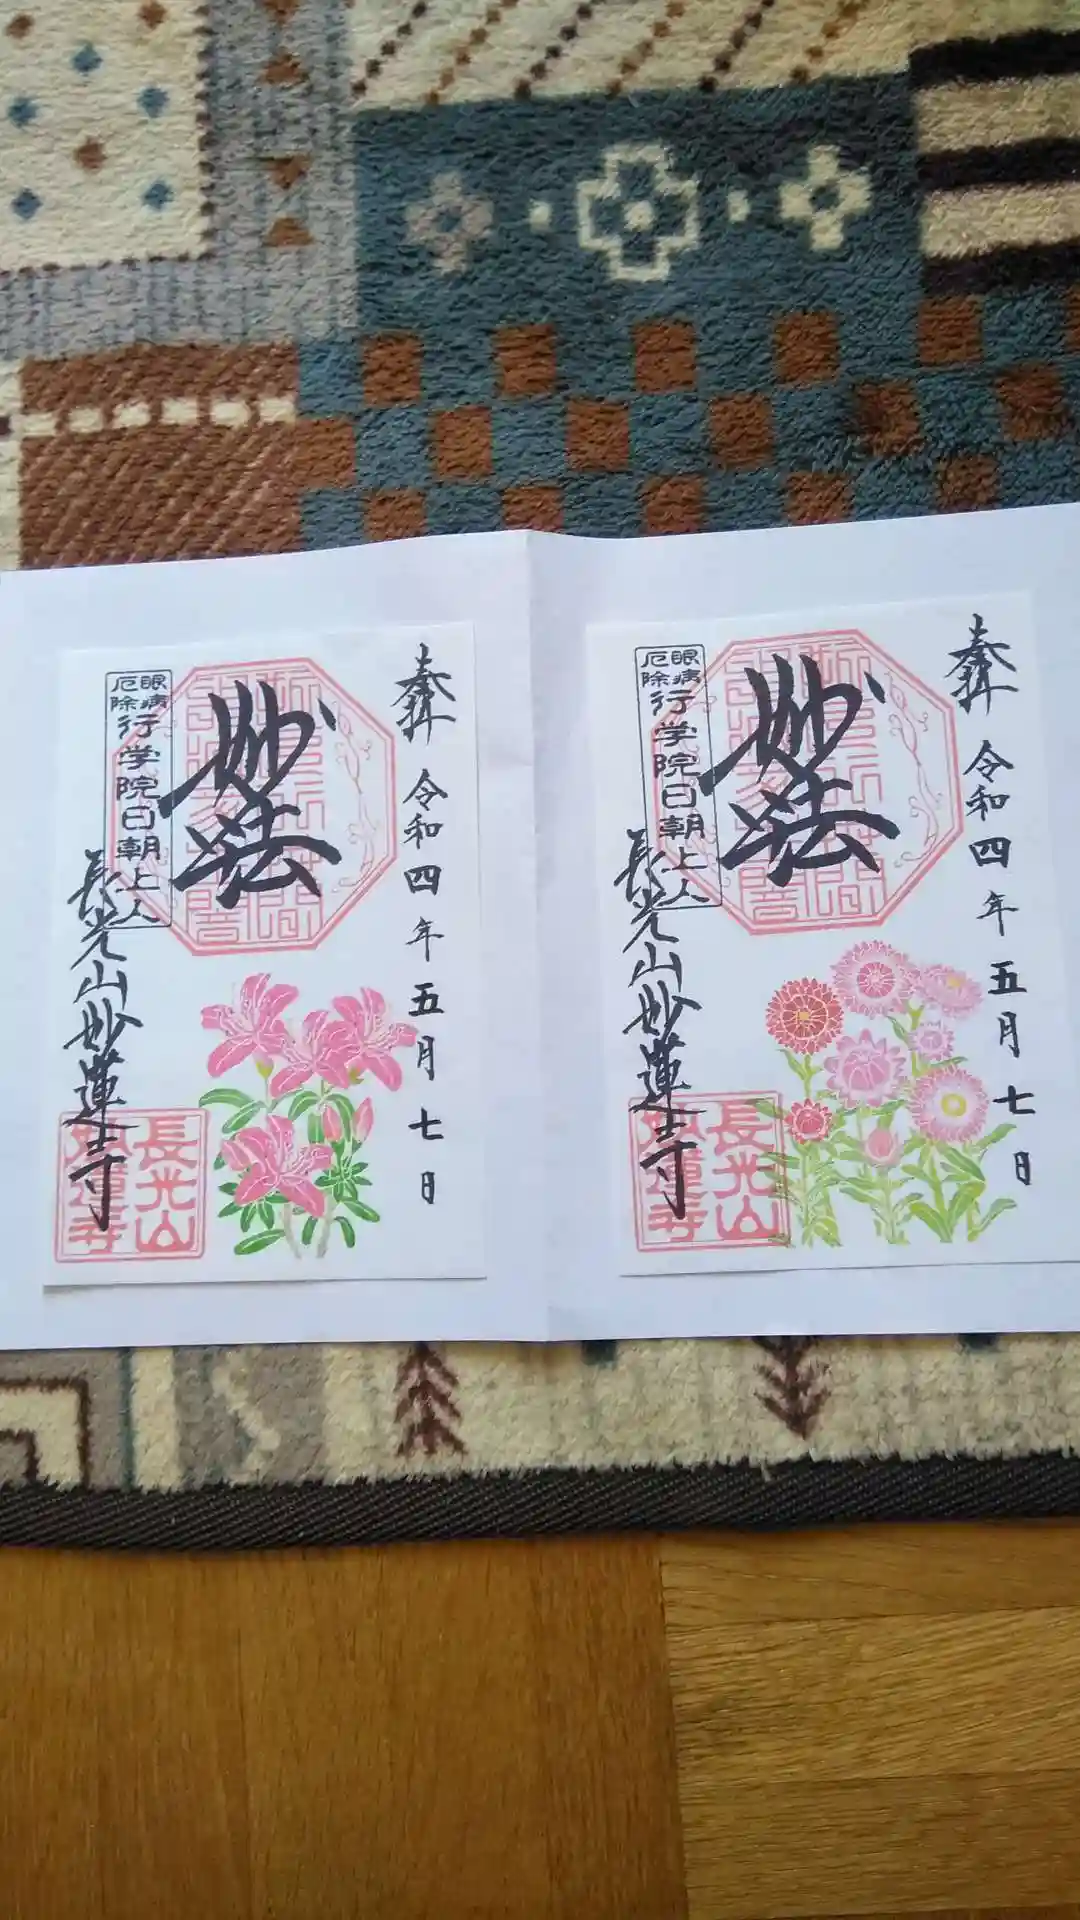 奉拝
令和四年五月七日
妙法
眼病
厄除
行学院日朝上人
長光山妙蓮寺
長光山
妙蓮寺
奉拝
令和四年五月七日
妙法
眼病
厄除
行学院日朝上人
長光山妙蓮寺
長光山
妙蓮寺